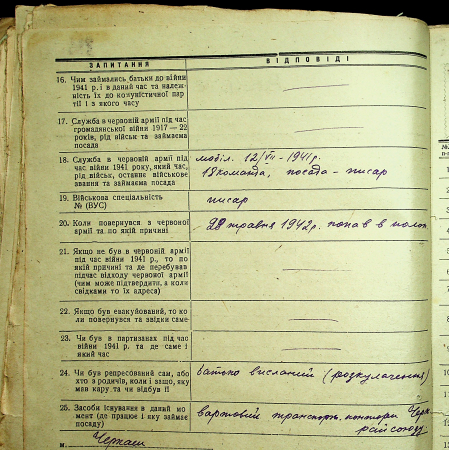 ЗАПИТАННЯ ВІДПОВІДІ
16. Чим займались батьки до війни
1941 р. і в даний час та належ-
ність їх до комуністичної пар-
тії і з якого часу
17. Служба в червоній армії під час
громадянської війни 1917—22
років, рід військ та займаєма
посада
18. Служба в червоній армії під час
війни 1941 року, який час,
рід військ, останнє військове
звання та займаєма посада
мобіл. 12/VII - 1941 р.
18 команда, посада - писар
19. Військова спеціальність
№ (ВУС)
писар
20. Коли повернувся в червоної
армії та по якій причині
28 травня 1942 р. попав в полон
21. Якщо не був в червоній армії
під час війни 1941 р., то по
якій причині та де перебував
підчас відходу червоної армії
(чим може підтвердити, а коли
свідками то їх адреса)
22. Якщо був евакуйований, то ко-
ли повернувся та звідки саме
23. Чи був в партизанах під час
війни 1941 р. та де саме і
який час
24. Чи був репресований сам, або
хто з родичів, коли і защо, яку
мав кару та чи відбув її
батько висланий (розкулачення)
25. Засоби існування в даний мо-
мент (де працює і яку займає
посаду)
вартовий транспорт. контори Черк.
райсоюзу
м. Черкаси